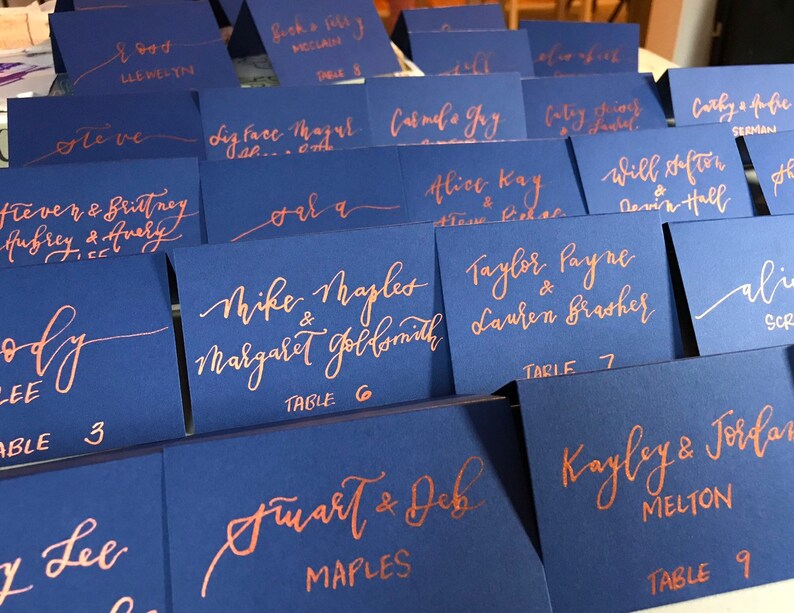 ross
LLEWELYN
MCCLAIN
TABLE 8
steve
Liz Face Mazur
Carmel & Guy
Cathy & Andre
SERMAN
Steven & Brittney
Aubrey & Avery
LEE
sara
Alice Kay
&
Steve Pierce
Will Sefton
&
Devin Hall
LEE
TABLE 3
Mike Maples
&
Margaret Goldsmith
TABLE 6
Taylor Payne
&
Lauren Brasher
TABLE 7
Lee
Stuart & Deb
MAPLES
Kayley & Jordan
MELTON
TABLE 9